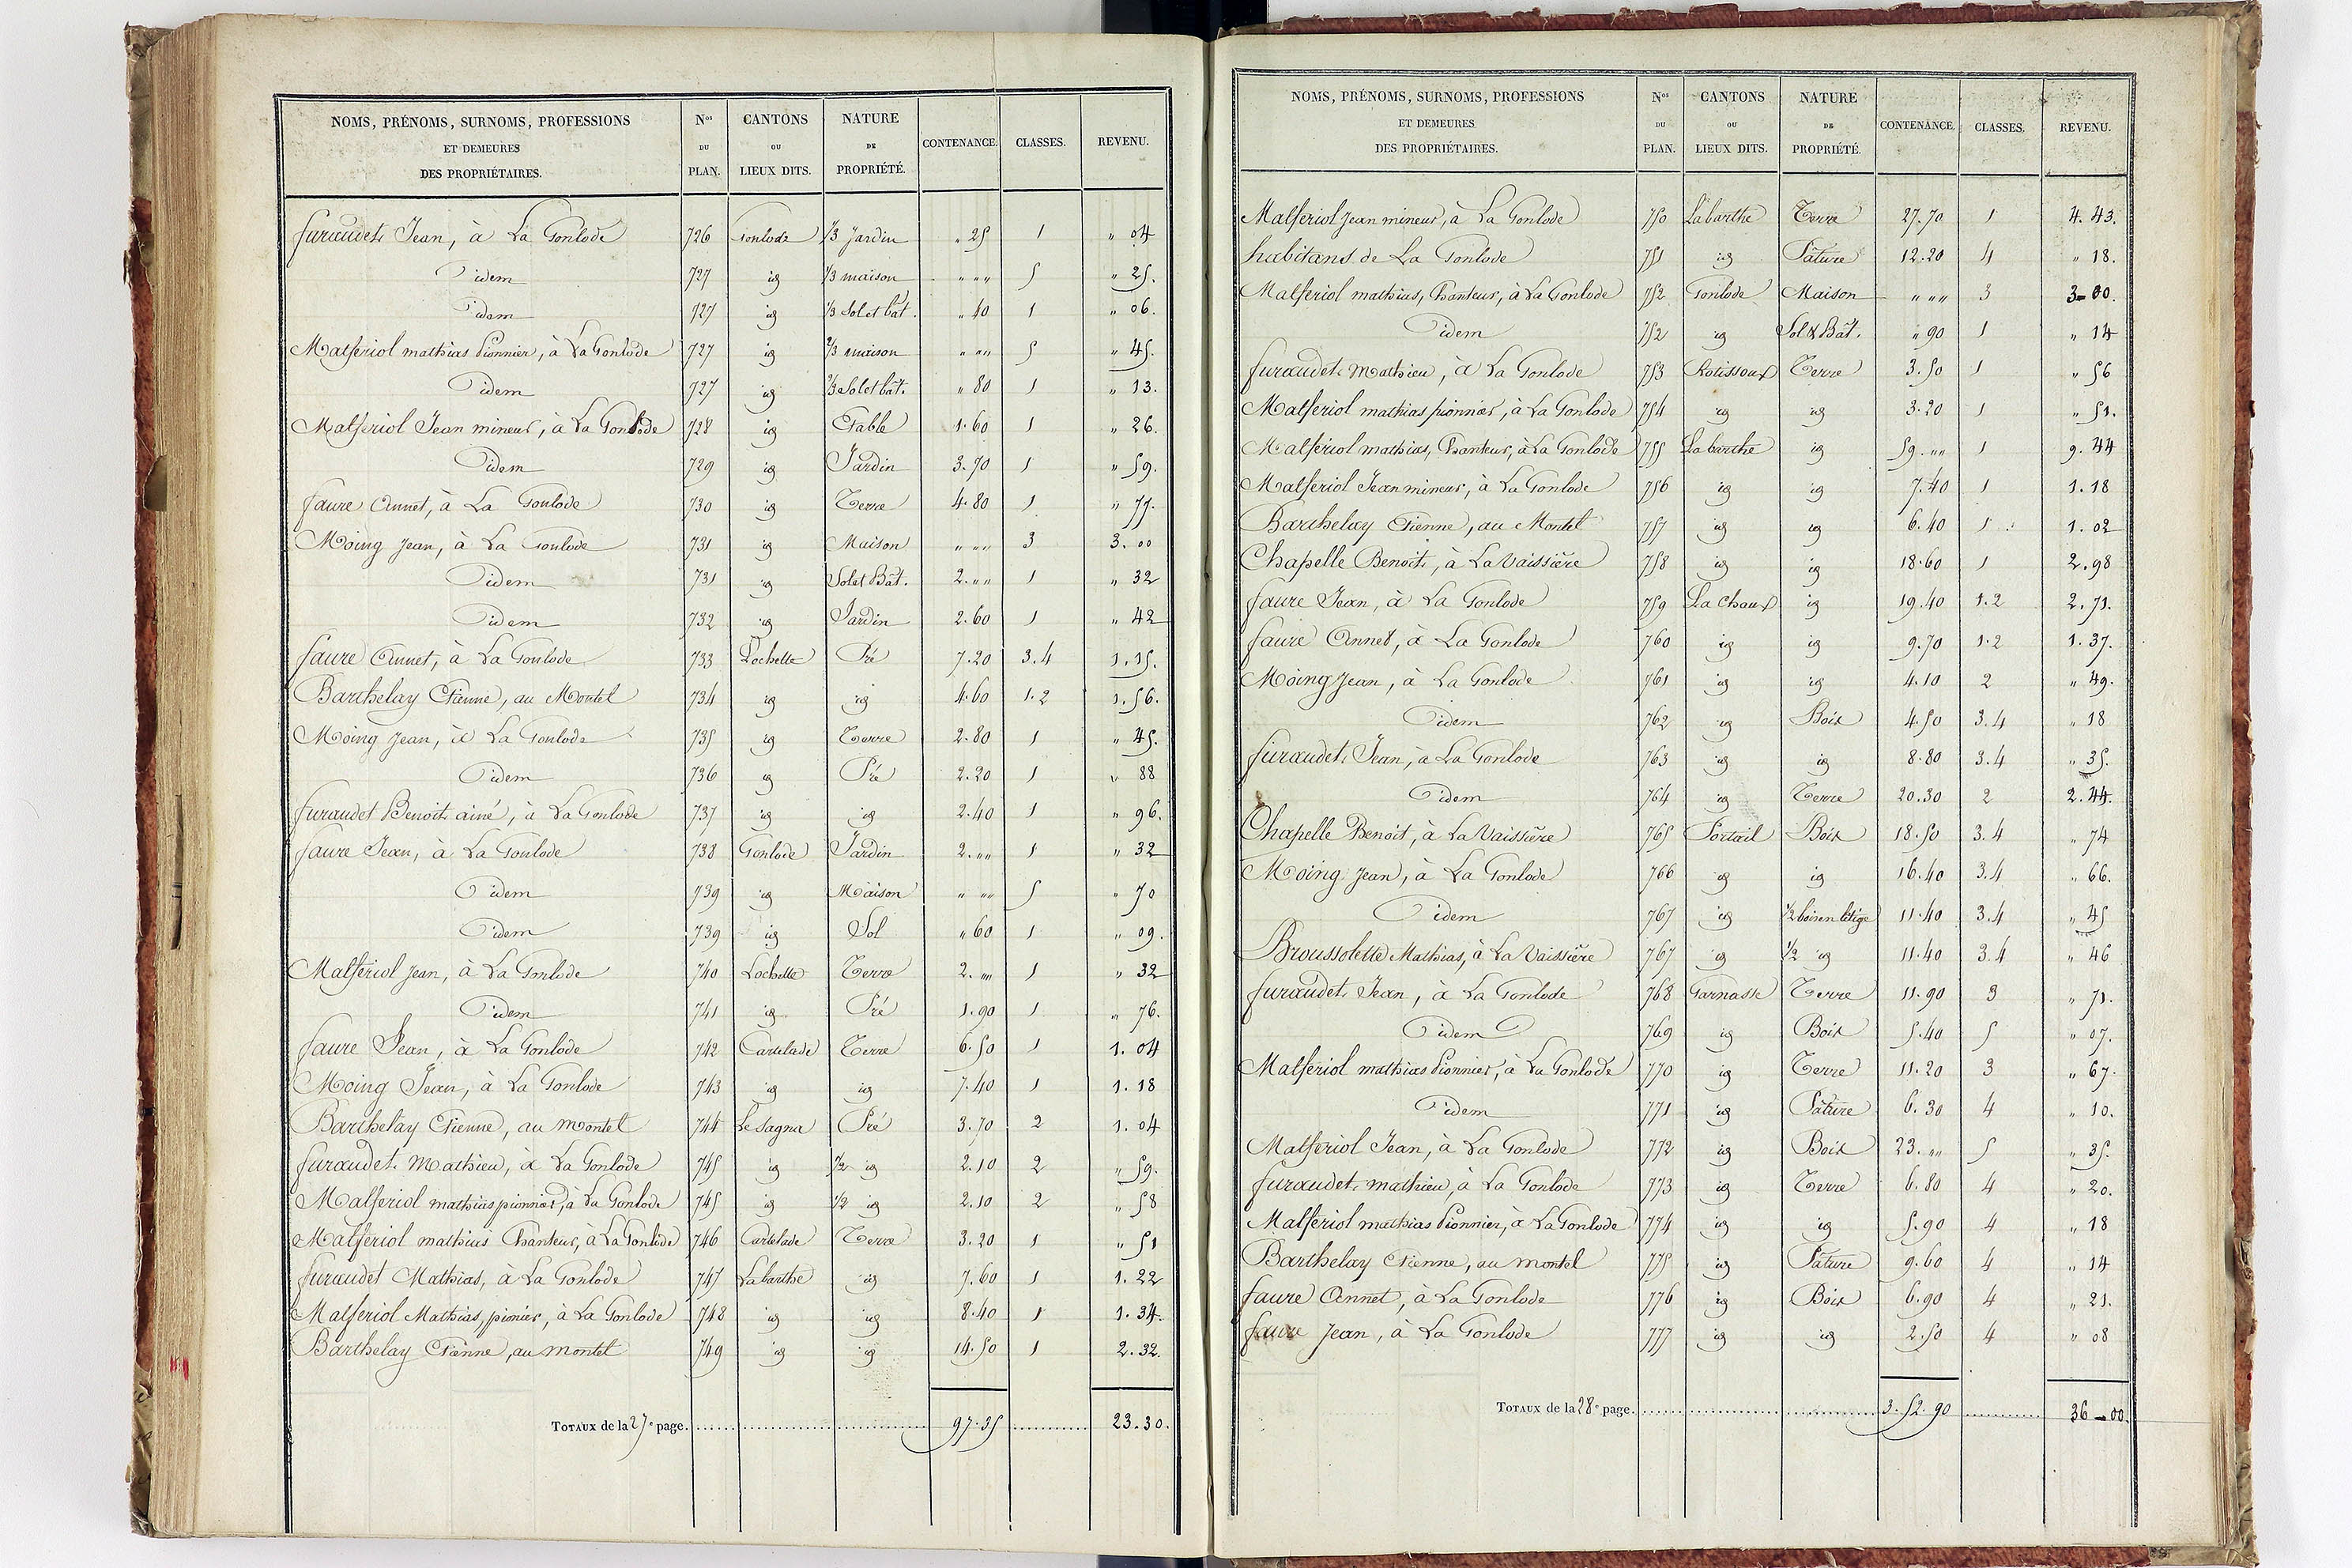 NOMS, PRÉNOMS, SURNOMS, PROFESSIONS ET DEMEURES DES PROPRIÉTAIRES. Nos DU PLAN. CANTONS OU LIEUX DITS. NATURE DE PROPRIÉTÉ. CONTENANCE. CLASSES. REVENU.
furaudet Jean, à La Gonlode 726 Gonlode 1/3 Jardin " 25 1 " 04
idem 727 id 1/3 maison " " " 5 " 25.
idem 727 id 1/3 Sol et bât. " 40 1 " 06.
Malferiol mathias Pionnier, à La Gonlode 727 id 2/3 maison " " " 5 " 45.
idem 727 id 2/3 Sol et bât. " 80 1 " 13.
Malferiol Jean mineur, à La Gonlode 728 id Etable 1.60 1 " 26.
idem 729 id Jardin 3.70 1 " 59.
faure Annet, à La Gonlode 730 id Terre 4.80 1 " 77.
Moing Jean, à La Gonlode 731 id Maison " " " 3 3.00
idem 731 id Sol et Bât. 2. " " 1 " 32
idem 732 id Jardin 2.60 1 " 42
faure Annet, à La Gonlode 733 Lochette Pré 7.20 3.4 1.15.
Barthelay Etienne, au Montel 734 id id 4.60 1.2 1.56.
Moing Jean, à La Gonlode 735 id Terre 2.80 1 " 45.
idem 736 id Pré 2.20 1 " 88
furaudet Benoit ainé, à La Gonlode 737 id id 2.40 1 " 96.
faure Jean, à La Gonlode 738 Gonlode Jardin 2. " " 1 " 32
idem 739 id Maison " " " 5 " 70
idem 739 id Sol " 60 1 " 09.
Malferiol Jean, à La Gonlode 740 Lochette Terre 2. " " 1 " 32
idem 741 id Pré 1.90 1 " 76.
faure Jean, à La Gonlode 742 Cartelade Terre 6.50 1 1.04
Moing Jean, à La Gonlode 743 id id 7.40 1 1.18
Barthelay Etienne, au montel 744 Le Sagna Pré 3.70 2 1.04
furaudet Mathieu, à La Gonlode 745 id 1/2 id 2.10 2 " 59.
Malferiol mathias pionnier, à La Gonlode 745 id 1/2 id 2.10 2 " 58
Malferiol mathias Chanteur, à La Gonlode 746 Cartelade Terre 3.20 1 " 51
furaudet Mathias, à La Gonlode 747 Labarthe id 7.60 1 1.22
Malferiol Mathias, pionier, à La Gonlode 748 id id 8.40 1 1.34.
Barthelay Etienne, au montel 749 id id 14.50 1 2.32.
TOTAUX de la 27e page. 97.35 23.30.
NOMS, PRÉNOMS, SURNOMS, PROFESSIONS ET DEMEURES DES PROPRIÉTAIRES. Nos DU PLAN. CANTONS OU LIEUX DITS. NATURE DE PROPRIÉTÉ. CONTENANCE. CLASSES. REVENU.
Malferiol Jean mineur, à La Gonlode 750 Labarthe Terre 27.70 1 4.43.
habitans de La Gonlode 751 id Pâture 12.20 4 " 18.
Malferiol mathias, Chanteur, à La Gonlode 752 Gonlode Maison " " " 3 3-00.
idem 752 id Sol & Bât. " 90 1 " 14
furaudet Mathieu, à La Gonlode 753 Rotissoux Terre 3.50 1 " 56
Malferiol mathias pionnier, à La Gonlode 754 id id 3.20 1 " 51.
Malferiol mathias, Chanteur, à La Gonlode 755 Labarthe id 59. " " 1 9.44
Malferiol Jean mineur, à La Gonlode 756 id id 7.40 1 1.18
Barthelay Etienne, au Montel 757 id id 6.40 1 1.02
Chapelle Benoit, à La Vaissière 758 id id 18.60 1 2.98
faure Jean, à La Gonlode 759 La Chaux id 19.40 1.2 2.71.
faure Annet, à La Gonlode 760 id id 9.70 1.2 1.37.
Moing Jean, à La Gonlode 761 id id 4.10 2 " 49.
idem 762 id Bois 4.50 3.4 " 18
furaudet Jean, à La Gonlode 763 id id 8.80 3.4 " 35.
idem 764 id Terre 20.30 2 2.44.
Chapelle Benoit, à La Vaissière 765 Portail Bois 18.50 3.4 " 74
Moing Jean, à La Gonlode 766 id id 16.40 3.4 " 66.
idem 767 id 1/2 bois en litige 11.40 3.4 " 45
Broussolette Mathias, à La Vaissière 767 id 1/2 id 11.40 3.4 " 46
furaudet Jean, à La Gonlode 768 Garnasse Terre 11.90 3 " 71.
idem 769 id Bois 5.40 5 " 07.
Malferiol mathias Pionnier, à La Gonlode 770 id Terre 11.20 3 " 67.
idem 771 id Pâture 6.30 4 " 10.
Malferiol Jean, à La Gonlode 772 id Bois 23. " " 5 " 35.
furaudet mathieu, à La Gonlode 773 id Terre 6.80 4 " 20.
Malferiol mathias Pionnier, à La Gonlode 774 id id 5.90 4 " 18
Barthelay Etienne, au montel 775 id Pâture 9.60 4 " 14
faure Annet, à La Gonlode 776 id Bois 6.90 4 " 21.
faure Jean, à La Gonlode 777 id id 2.50 4 " 08
TOTAUX de la 28e page. 3.52.90 36-00.